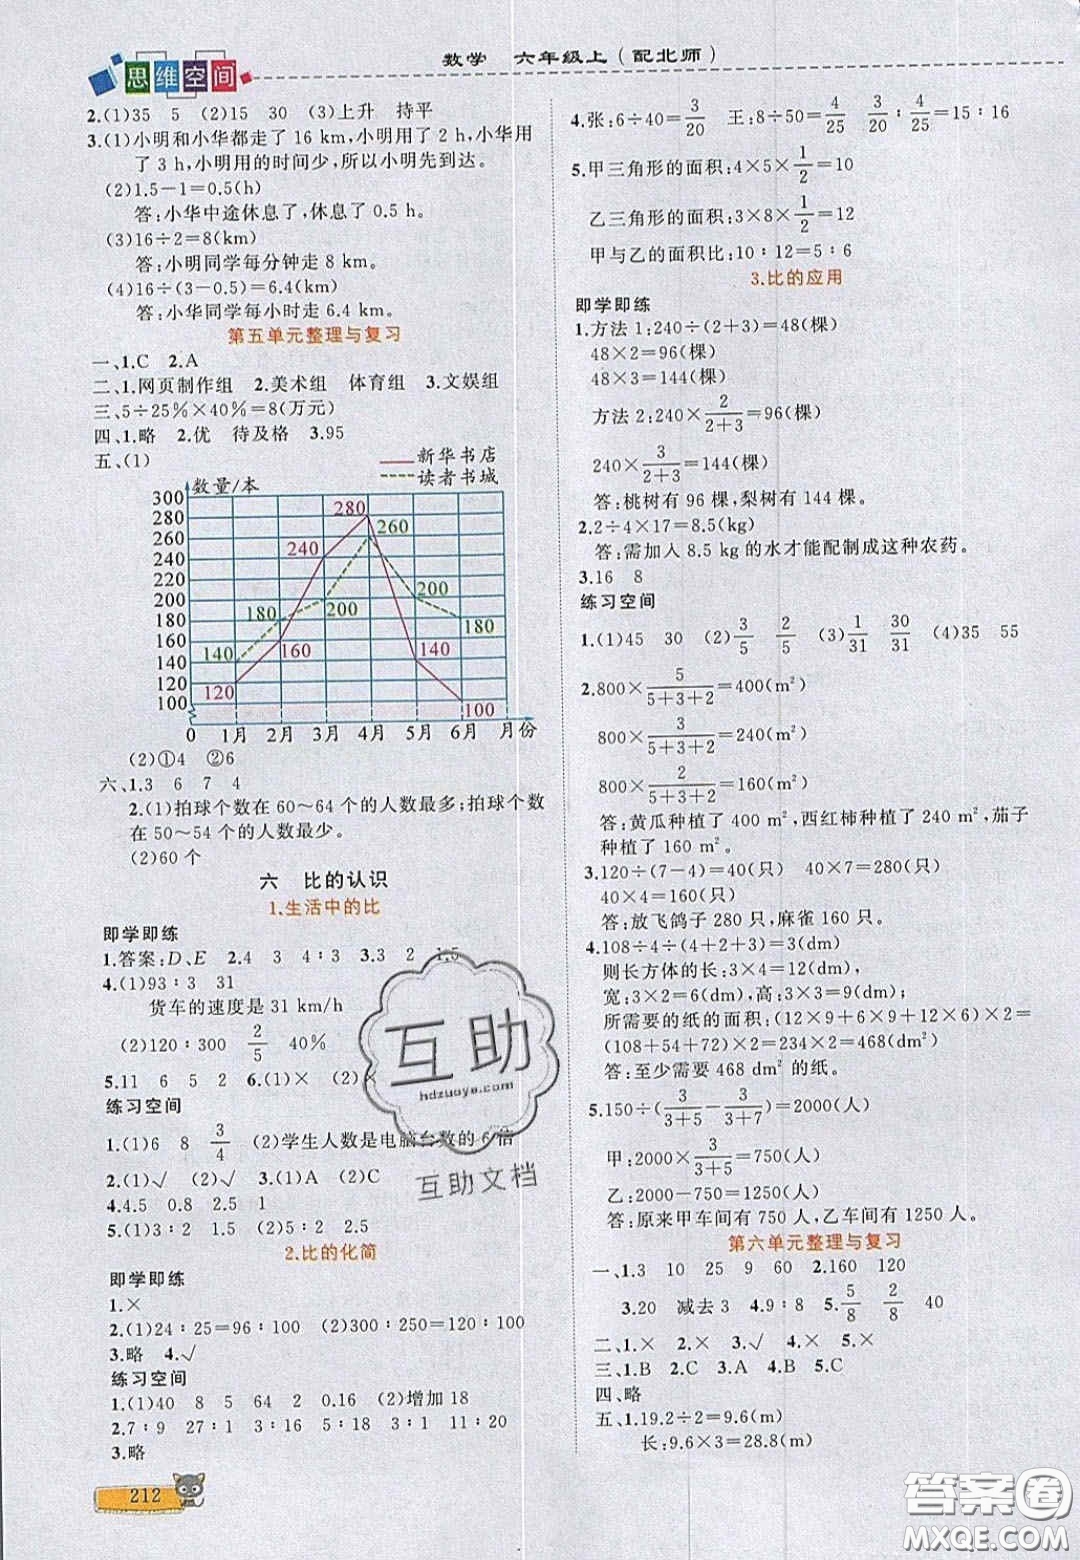 思维空间
数学 六年级上(配北师)
2.(1)35 5 (2)15 30 (3)上升 持平
3.(1)小明和小华都走了 16 km,小明用了 2 h,小华用
了 3 h,小明用的时间少,所以小明先到达。
(2)1.5－1＝0.5(h)
答:小华中途休息了,休息了 0.5 h。
(3)16÷2＝8(km)
答:小明同学每分钟走 8 km。
(4)16÷(3－0.5)＝6.4(km)
答:小华同学每小时走 6.4 km。
第五单元整理与复习
一、1.C 2.A
二、1.网页制作组 2.美术组 体育组 3.文娱组
三、5÷25%×40%＝8(万元)
四、1.略 2.优 待及格 3.95
五、(1)
新华书店
读者书城
数量/本
300
280
260
240
220
200
180
160
140
120
100
0 1月 2月 3月 4月 5月 6月 月份
120 160 240 280 140 100
140 180 200 260 200 180
(2)①4 ②6
六、1.3 6 7 4
2.(1)拍球个数在 60～64 个的人数最多;拍球个数
在 50～54 个的人数最少。
(2)60 个
六 比的认识
1.生活中的比
即学即练
1.答案:D、E 2.4 3 4∶3 3.2 1.5
4.(1)93∶3 31
货车的速度是 31 km/h
(2)120∶300 2/5 40%
5.11 6 5 2 6.(1)× (2)×
练习空间
1.(1)6 8 3/4 (2)学生人数是电脑台数的 6 倍
2.(1)√ (2)√ 3.(1)A (2)C
4.4.5 0.8 2.5 1
5.(1)3∶2 1.5 (2)5∶2 2.5
2.比的化简
即学即练
1.×
2.(1)24∶25＝96∶100 (2)300∶250＝120∶100
3.略 4.√
练习空间
1.(1)40 8 5 64 2 0.16 (2)增加 18
2.7∶9 27∶1 3∶16 5∶18 3∶1 11∶20
3.略
212
4.张:6÷40＝3/20 王:8÷50＝4/25 3/20∶4/25＝15∶16
5.甲三角形的面积:4×5×1/2＝10
乙三角形的面积:3×8×1/2＝12
甲与乙的面积比:10∶12＝5∶6
3.比的应用
即学即练
1.方法 1:240÷(2＋3)＝48(棵)
48×2＝96(棵)
48×3＝144(棵)
方法 2:240×2/(2＋3)＝96(棵)
240×3/(2＋3)＝144(棵)
答:桃树有 96 棵,梨树有 144 棵。
2.2÷4×17＝8.5(kg)
答:需加入 8.5 kg 的水才能配制成这种农药。
3.16 8
练习空间
1.(1)45 30 (2)3/5 2/5 (3)1/31 30/31 (4)35 55
2.800×5/(5＋3＋2)＝400(m²)
800×3/(5＋3＋2)＝240(m²)
800×2/(5＋3＋2)＝160(m²)
答:黄瓜种植了 400 m²,西红柿种植了 240 m²,茄子
种植了 160 m²。
3.120÷(7－4)＝40(只) 40×7＝280(只)
40×4＝160(只)
答:放飞鸽子 280 只,麻雀 160 只。
4.108÷4÷(4＋2＋3)＝3(dm)
则长方体的长:3×4＝12(dm);
宽:3×2＝6(dm),高:3×3＝9(dm);
所需要的纸的面积:(12×9＋6×9＋12×6)×2＝
(108＋54＋72)×2＝234×2＝468(dm²)
答:至少需要 468 dm²的纸。
5.150÷(3/(3＋5)－3/(3＋7))＝2000(人)
甲:2000×3/(3＋5)＝750(人)
乙:2000－750＝1250(人)
答:原来甲车间有 750 人,乙车间有 1250 人。
第六单元整理与复习
一、1.3 10 25 9 60 2.160 120
3.20 减去 3 4.9∶8 5.5/8 2/8 40
二、1.× 2.× 3.√ 4.× 5.×
三、1.B 2.C 3.A 4.B 5.C
四、略
五、1.19.2÷2＝9.6(m)
长:9.6×3＝28.8(m)
互助
hdzuoye.com
互助文档
答案圈
MXQE.COM